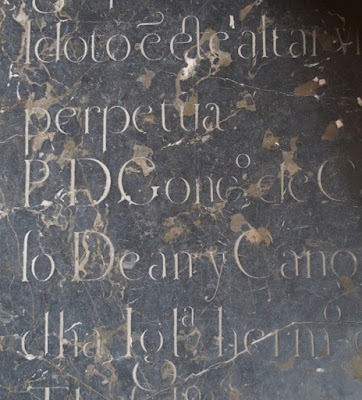 ldoto ẽ este altar
perpetua.
P. D Gonc.º de C
so Dean y Cano
dha Igl.ª herm.º